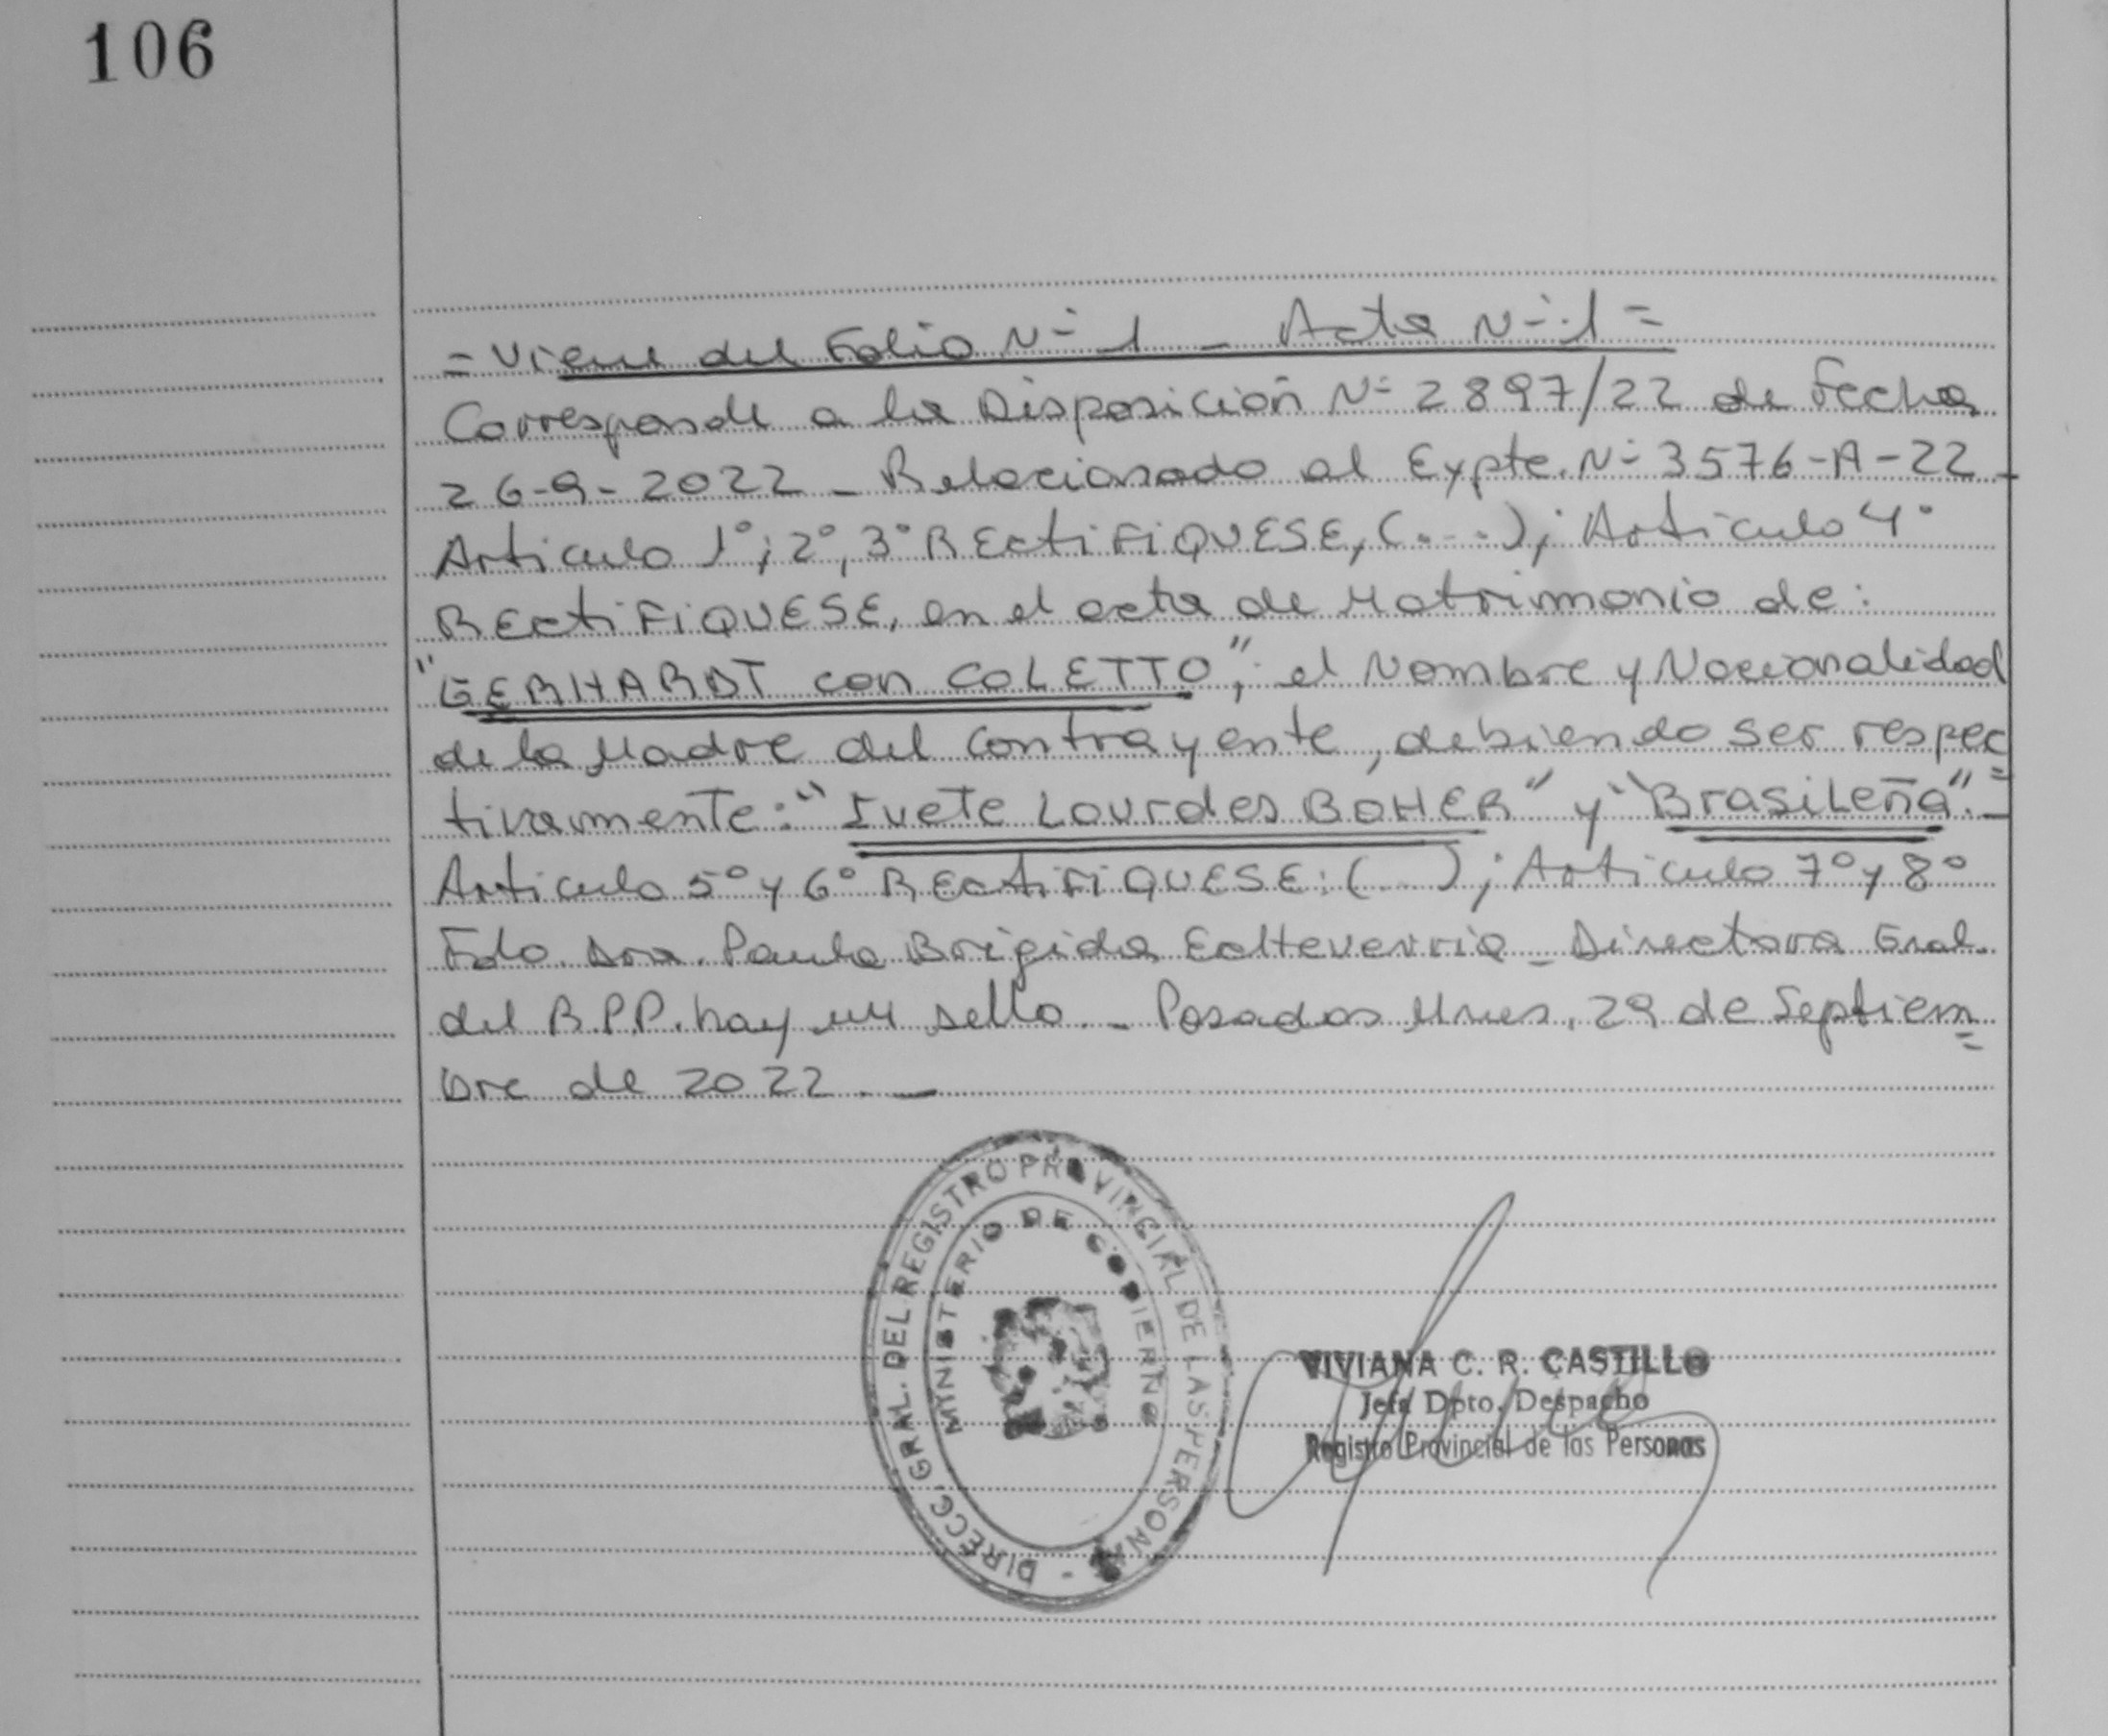 106
= Viene del Folio N° 1 - Acta N° 1 =
Corresponde a la Disposición N° 2897/22 de Fecha
26-9-2022 - Relacionado al Expte. N° 3576-A-22 -
Articulo 1°; 2°, 3° RECtiFiQUESE, (...); Articulo 4°
RECtiFiQUESE, en el acta de Matrimonio de:
"GERHARDT con COLETTO", el Nombre y Nacionalidad
de la Madre del Contrayente, debiendo ser respec=
tivamente: "Ivete Lourdes BOHER" y "Brasileña". -
Articulo 5° y 6° RECtiFiQUESE: (...); Articulo 7° y 8°
Fdo. Dra. Paula Brigida Echeverria - Directora Gral.
del R.P.P. hay un sello. - Posadas Mnes. 29 de Septiem=
bre de 2022. -
DIRECC. GRAL. DEL REGISTRO PROVINCIAL DE LAS PERSONAS -
MINISTERIO DE GOBIERNO
VIVIANA C. R. CASTILLO
Jefa Dpto. Despacho
Registro Provincial de las Personas